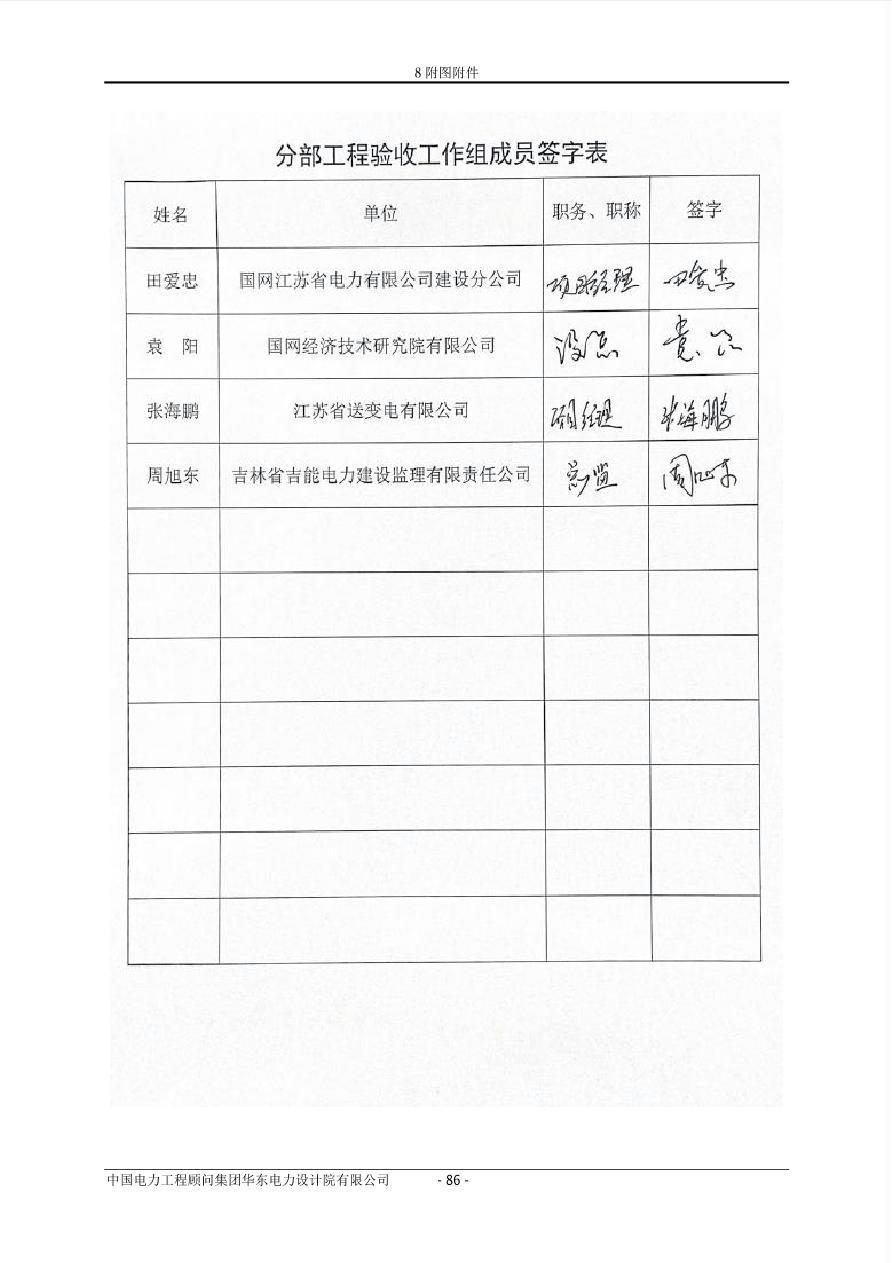 8 附图附件
分部工程验收工作组成员签字表
姓名 单位 职务、职称 签字
田爱忠 国网江苏省电力有限公司建设分公司 项目经理 田爱忠
袁 阳 国网经济技术研究院有限公司 设总 袁阳
张海鹏 江苏省送变电有限公司 项目经理 张海鹏
周旭东 吉林省吉能电力建设监理有限责任公司 总监 周旭东
中国电力工程顾问集团华东电力设计院有限公司 - 86 -